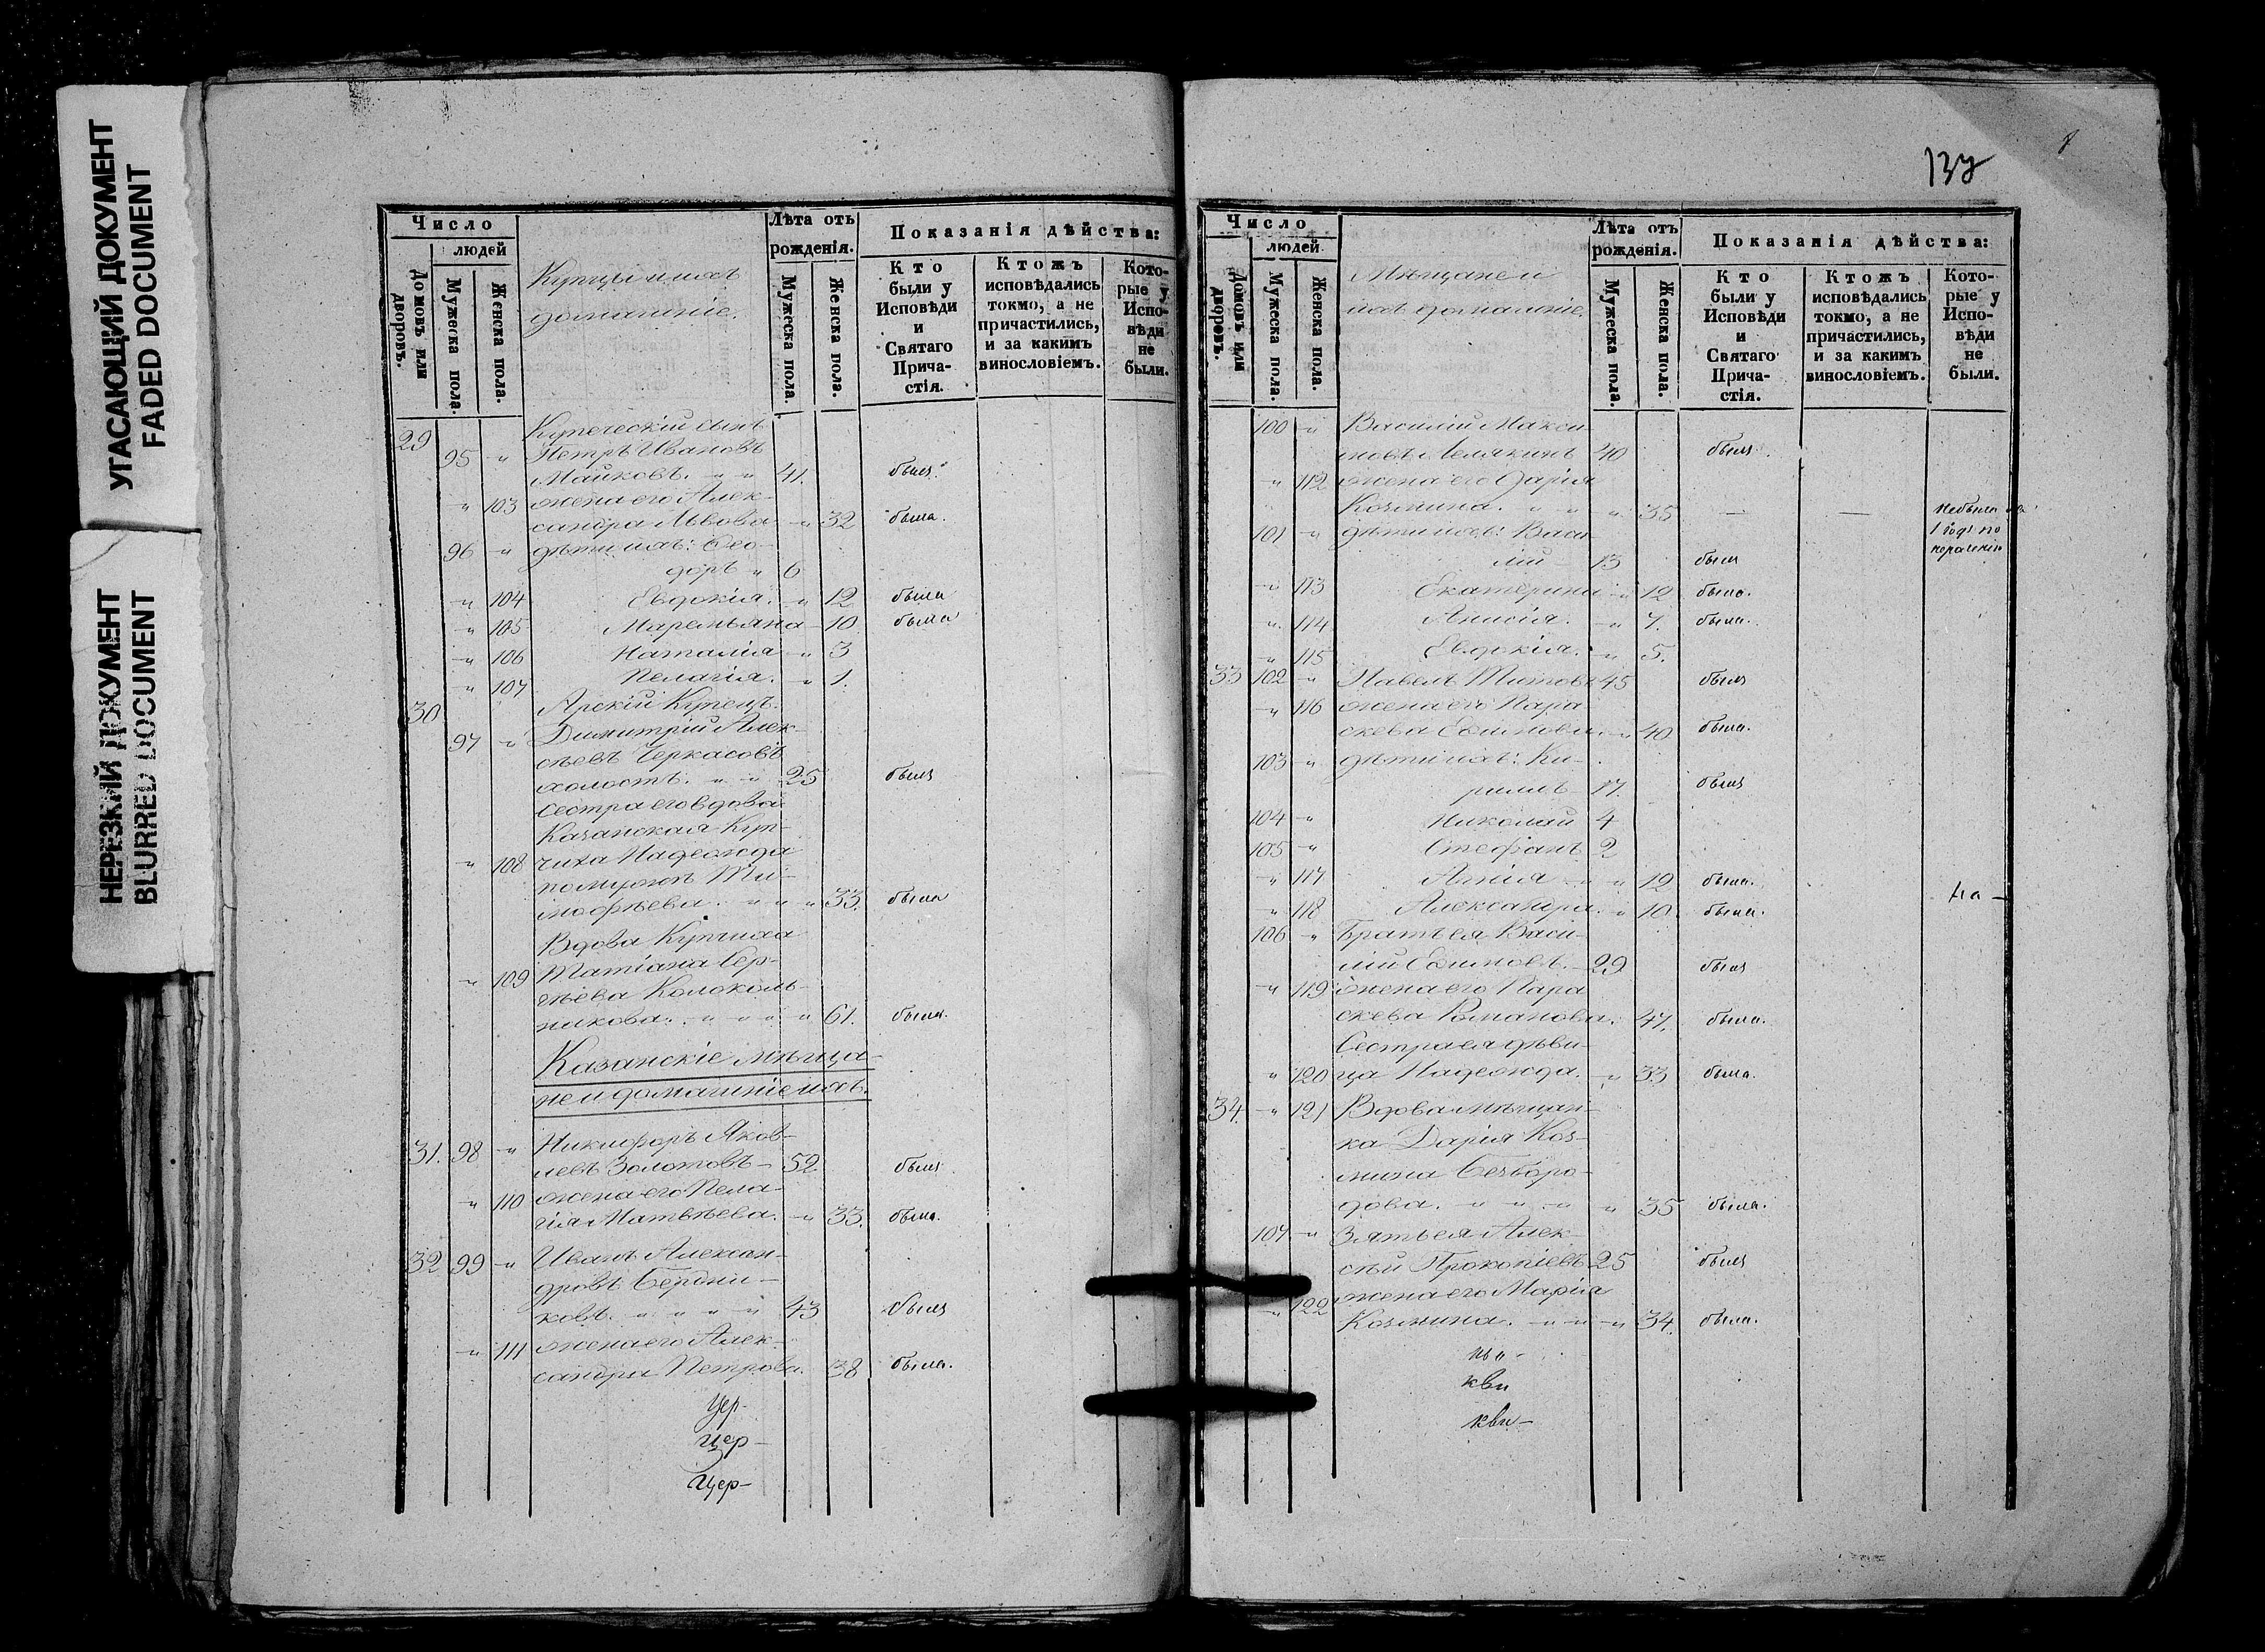 УГАСАЮЩИЙ ДОКУМЕНТ
FADED DOCUMENT
НЕРЕЗКИЙ ДОКУМЕНТ
BLURRED DOCUMENT
Число
людей
Домовъ или дворовъ.
Мужеска пола.
Женска пола.
Купцы и ихъ
домашніе.
Лѣта отъ рожденія.
Мужеска пола.
Женска пола.
Показанія дѣйства:
Кто были у Исповѣди и Святаго Прича-стія.
Ктожъ исповѣдались токмо, а не причастились, и за какимъ винословіемъ.
Кото-рые у Испо-вѣди не были.
29 Купеческій сынъ
95 " Петръ Ивановъ
Майковъ. " " 41. былъ
" 103 жена его Алек-
сандра Львова " 32 была.
96 " дѣти ихъ: Ѳео-
доръ " 6
" 104 Евдокія. " 12 была
" 105 Маремьяна 10. была
" 106 Наталія " 3
" 107 Пелагія. " 1.
30 Арскій Купецъ
97 " Димитрій Алек-
сѣевъ Черкасовъ
холостъ. " " 25 былъ
Сестра его вдова
Казанская Куп-
" 108 чиха Надежда
помужѣ Ти-
мофѣева. " " " 33. была
Вдова Купчиха
" 109 Татіана Сер-
гѣева Колоколь-
никова. " " " " 61. была.
Казанскіе мѣща-
не и домашніе ихъ.
31. 98 " Никифоръ Яков-
левъ Золотовъ 52. былъ
" 110 жена его Пела-
гія Матвѣева. " 33. была.
32 99 " Иванъ Алексан-
дровъ Бердни-
ковъ. " " " " 43 былъ
" 111 жена его Алек-
сандра Петрова. 38 была.
Цер-
Цер-
Цер-
137
Число
людей
Домовъ или дворовъ.
Мужеска пола.
Женска пола.
Мѣщане и
ихъ домашніе.
Лѣта отъ рожденія.
Мужеска пола.
Женска пола.
Показанія дѣйства:
Кто были у Исповѣди и Святаго Прича-стія.
Ктожъ исповѣдались токмо, а не причастились, и за какимъ винословіемъ.
Кото-рые у Испо-вѣди не были.
100 " Василій Макси-
мовъ 40 былъ.
" 112 жена его Дарія
Козмина. " " " 35 — — Небыла
101 " дѣти ихъ: Васи- 1 годъ по
лій 13 былъ
" 113 Екатерина " 12 была.
" 114 Анисія. " 7. была.
" 115 Евдокія. " 5.
33 102 " Павелъ Титовъ 45 былъ
" 116 жена его Пара-
скева Ефимова. " 40 была.
103 " дѣти ихъ: Ки-
риллъ 17. былъ
104 " Николай 4
105 " Стефанъ 2
" 117 " 12 была.
" 118 Александра. " 10. была.
106 " Братъ ея Васи-
лій Ефимовъ. 29. былъ
" 119 жена его Пара-
скева Романова. 47. была.
Сестра ея дѣви-
" 120 ца Надежда. " 33 была.
34. " 121 Вдова мѣщан-
ка Дарія Коз-
мина Безборо-
дова. " " " " 35 была.
107 " Зять ея Алек-
сѣй Прокопіевъ 25 былъ
" 122 жена его Марія
Козмина. " " " 34. была.
кви
кви-